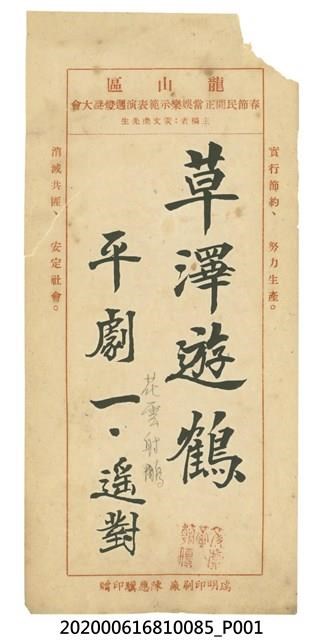 龍山區
春節民間正當娛樂示範表演迴燈謎大會
實行節約、努力生產。
草澤遊鶴
花雲射鵰
平劇一·遙對
消滅共匪、安定社會。
瑞明印刷廠 陳應驥印贈
202000616810085_P001